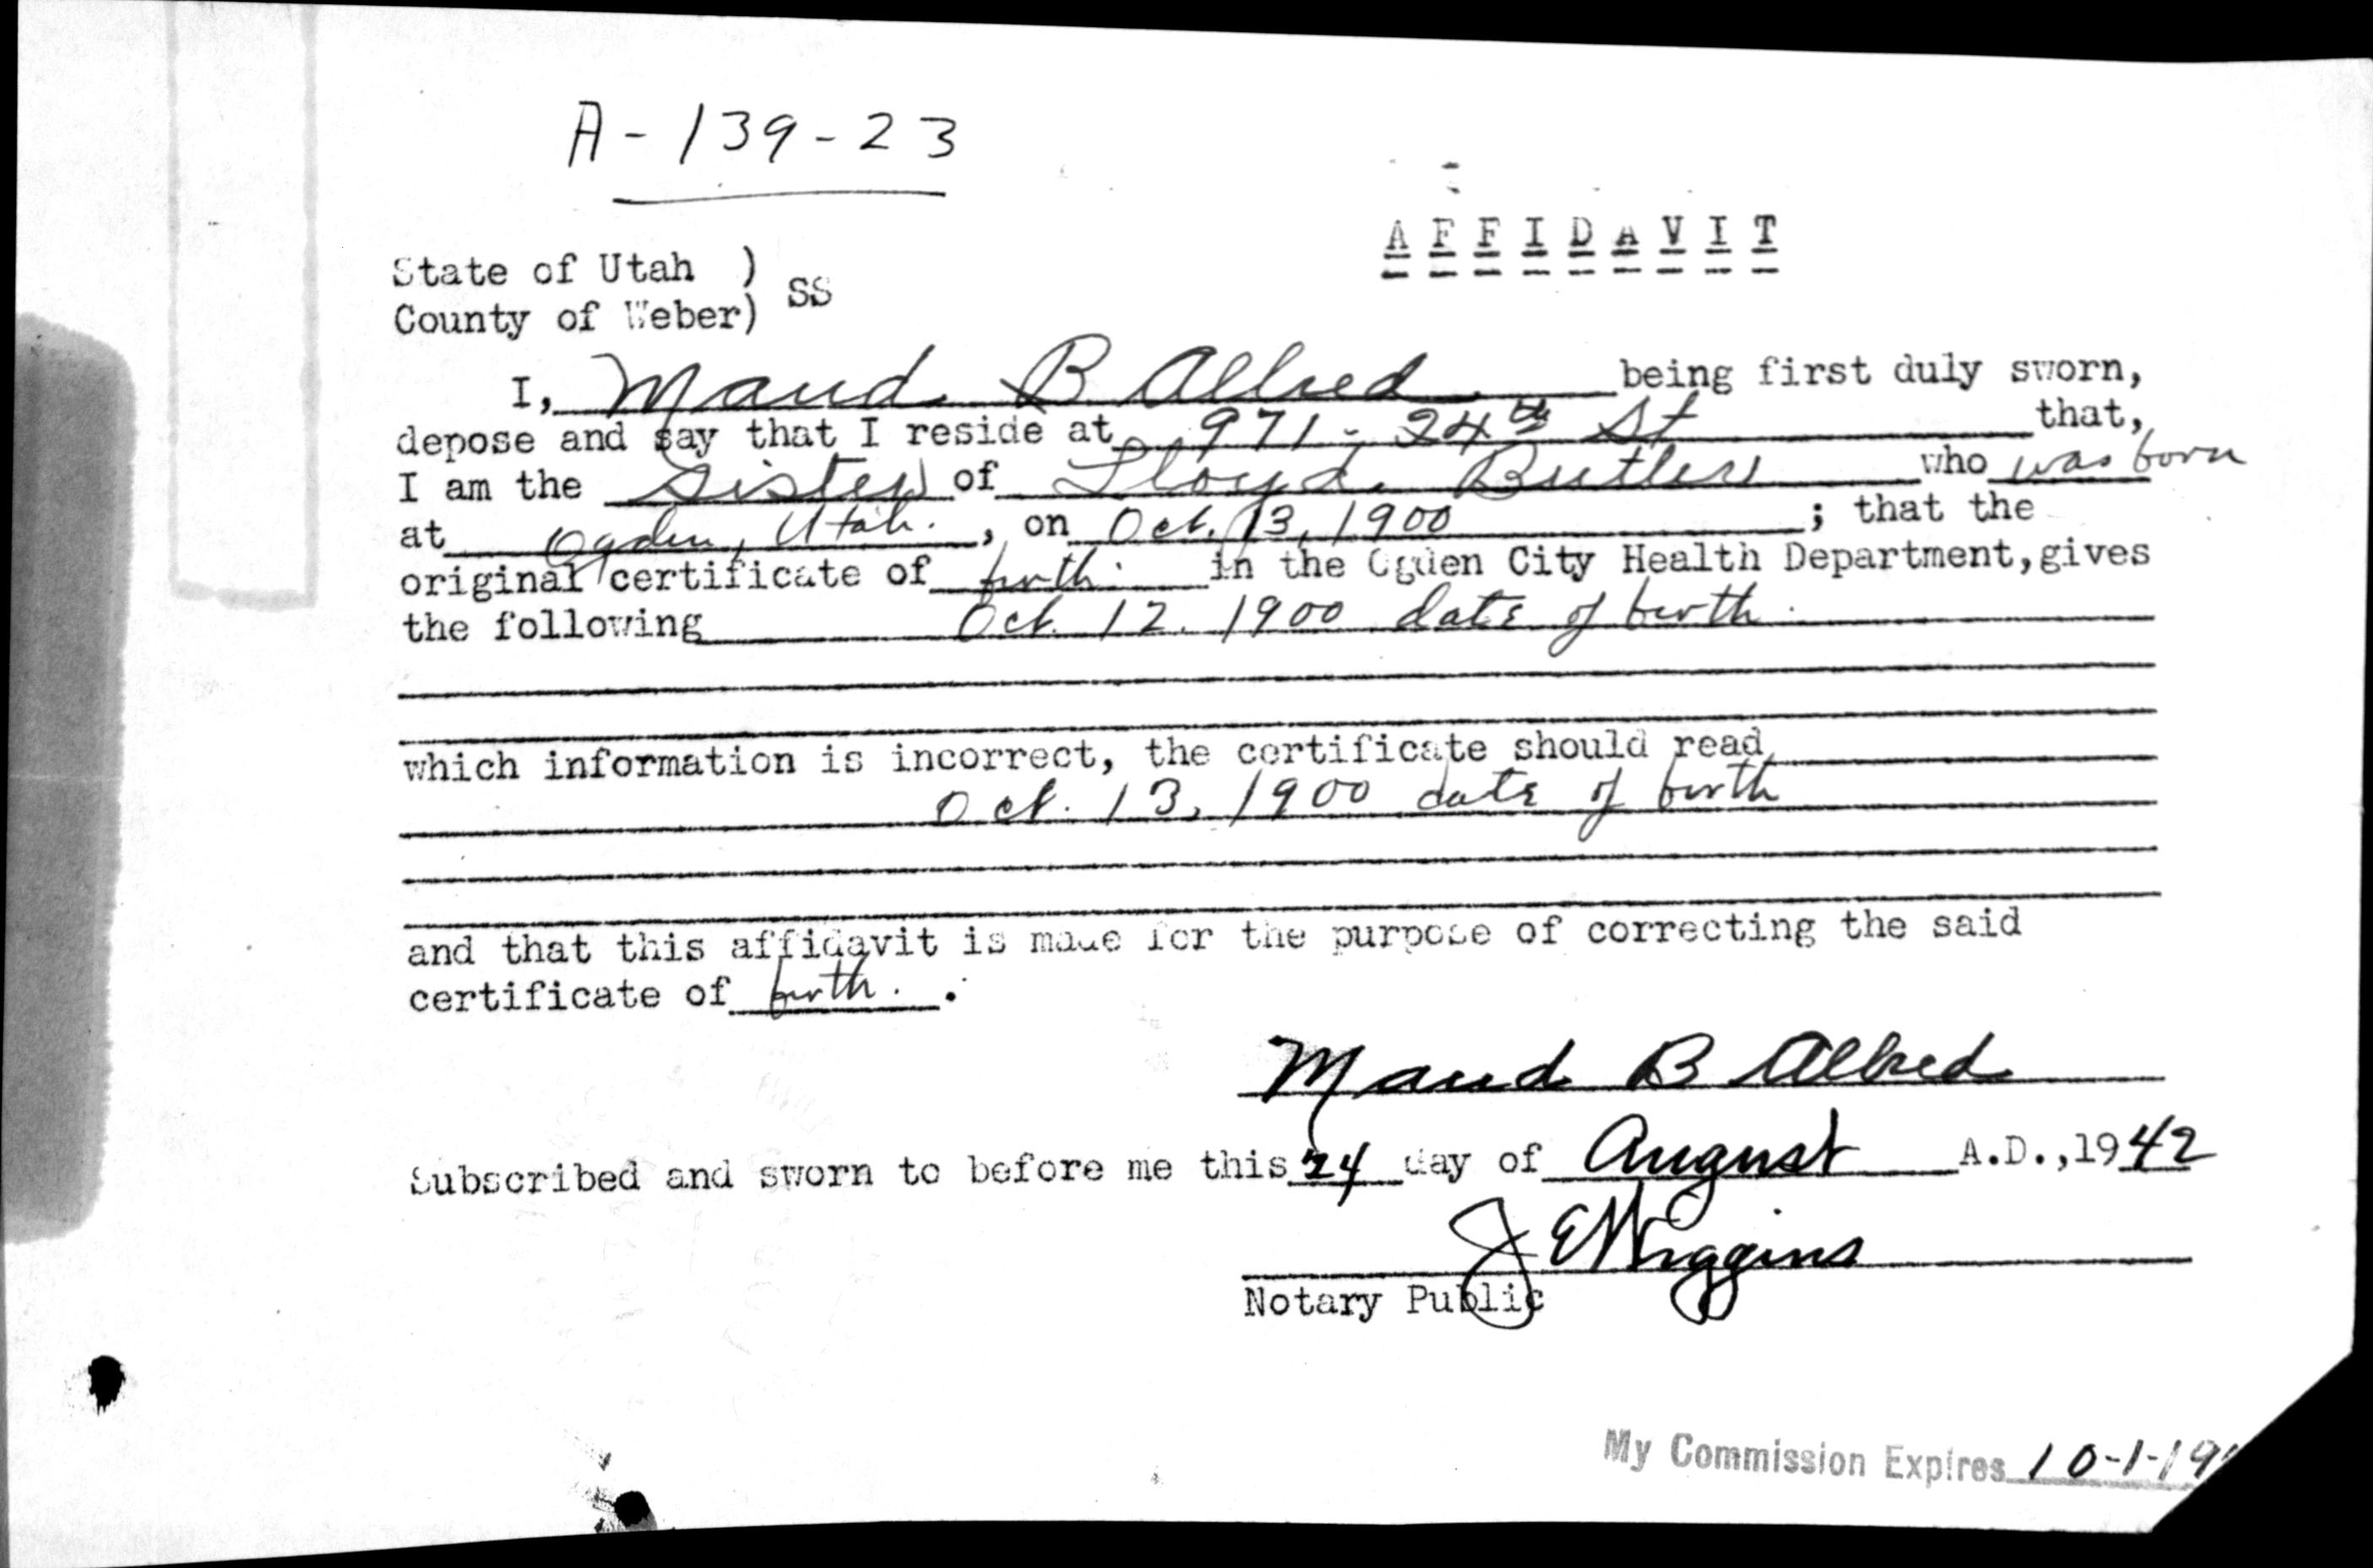 A-139-23
AFFIDAVIT
State of Utah )
County of Weber) SS
I, Maud B Allred being first duly sworn,
depose and say that I reside at 971-24th St that,
I am the Sister of Lloyd Butler who was born
at Ogden, Utah. , on Oct. 13, 1900 ; that the
original certificate of birth. in the Ogden City Health Department, gives
the following Oct. 12. 1900 date of birth.
which information is incorrect, the certificate should read
Oct. 13, 1900 date of birth
and that this affidavit is made for the purpose of correcting the said
certificate of birth. .
Maud B Allred
Subscribed and sworn to before me this 24 day of August A.D., 1942
J E Wiggins
Notary Public
My Commission Expires 10-1-19